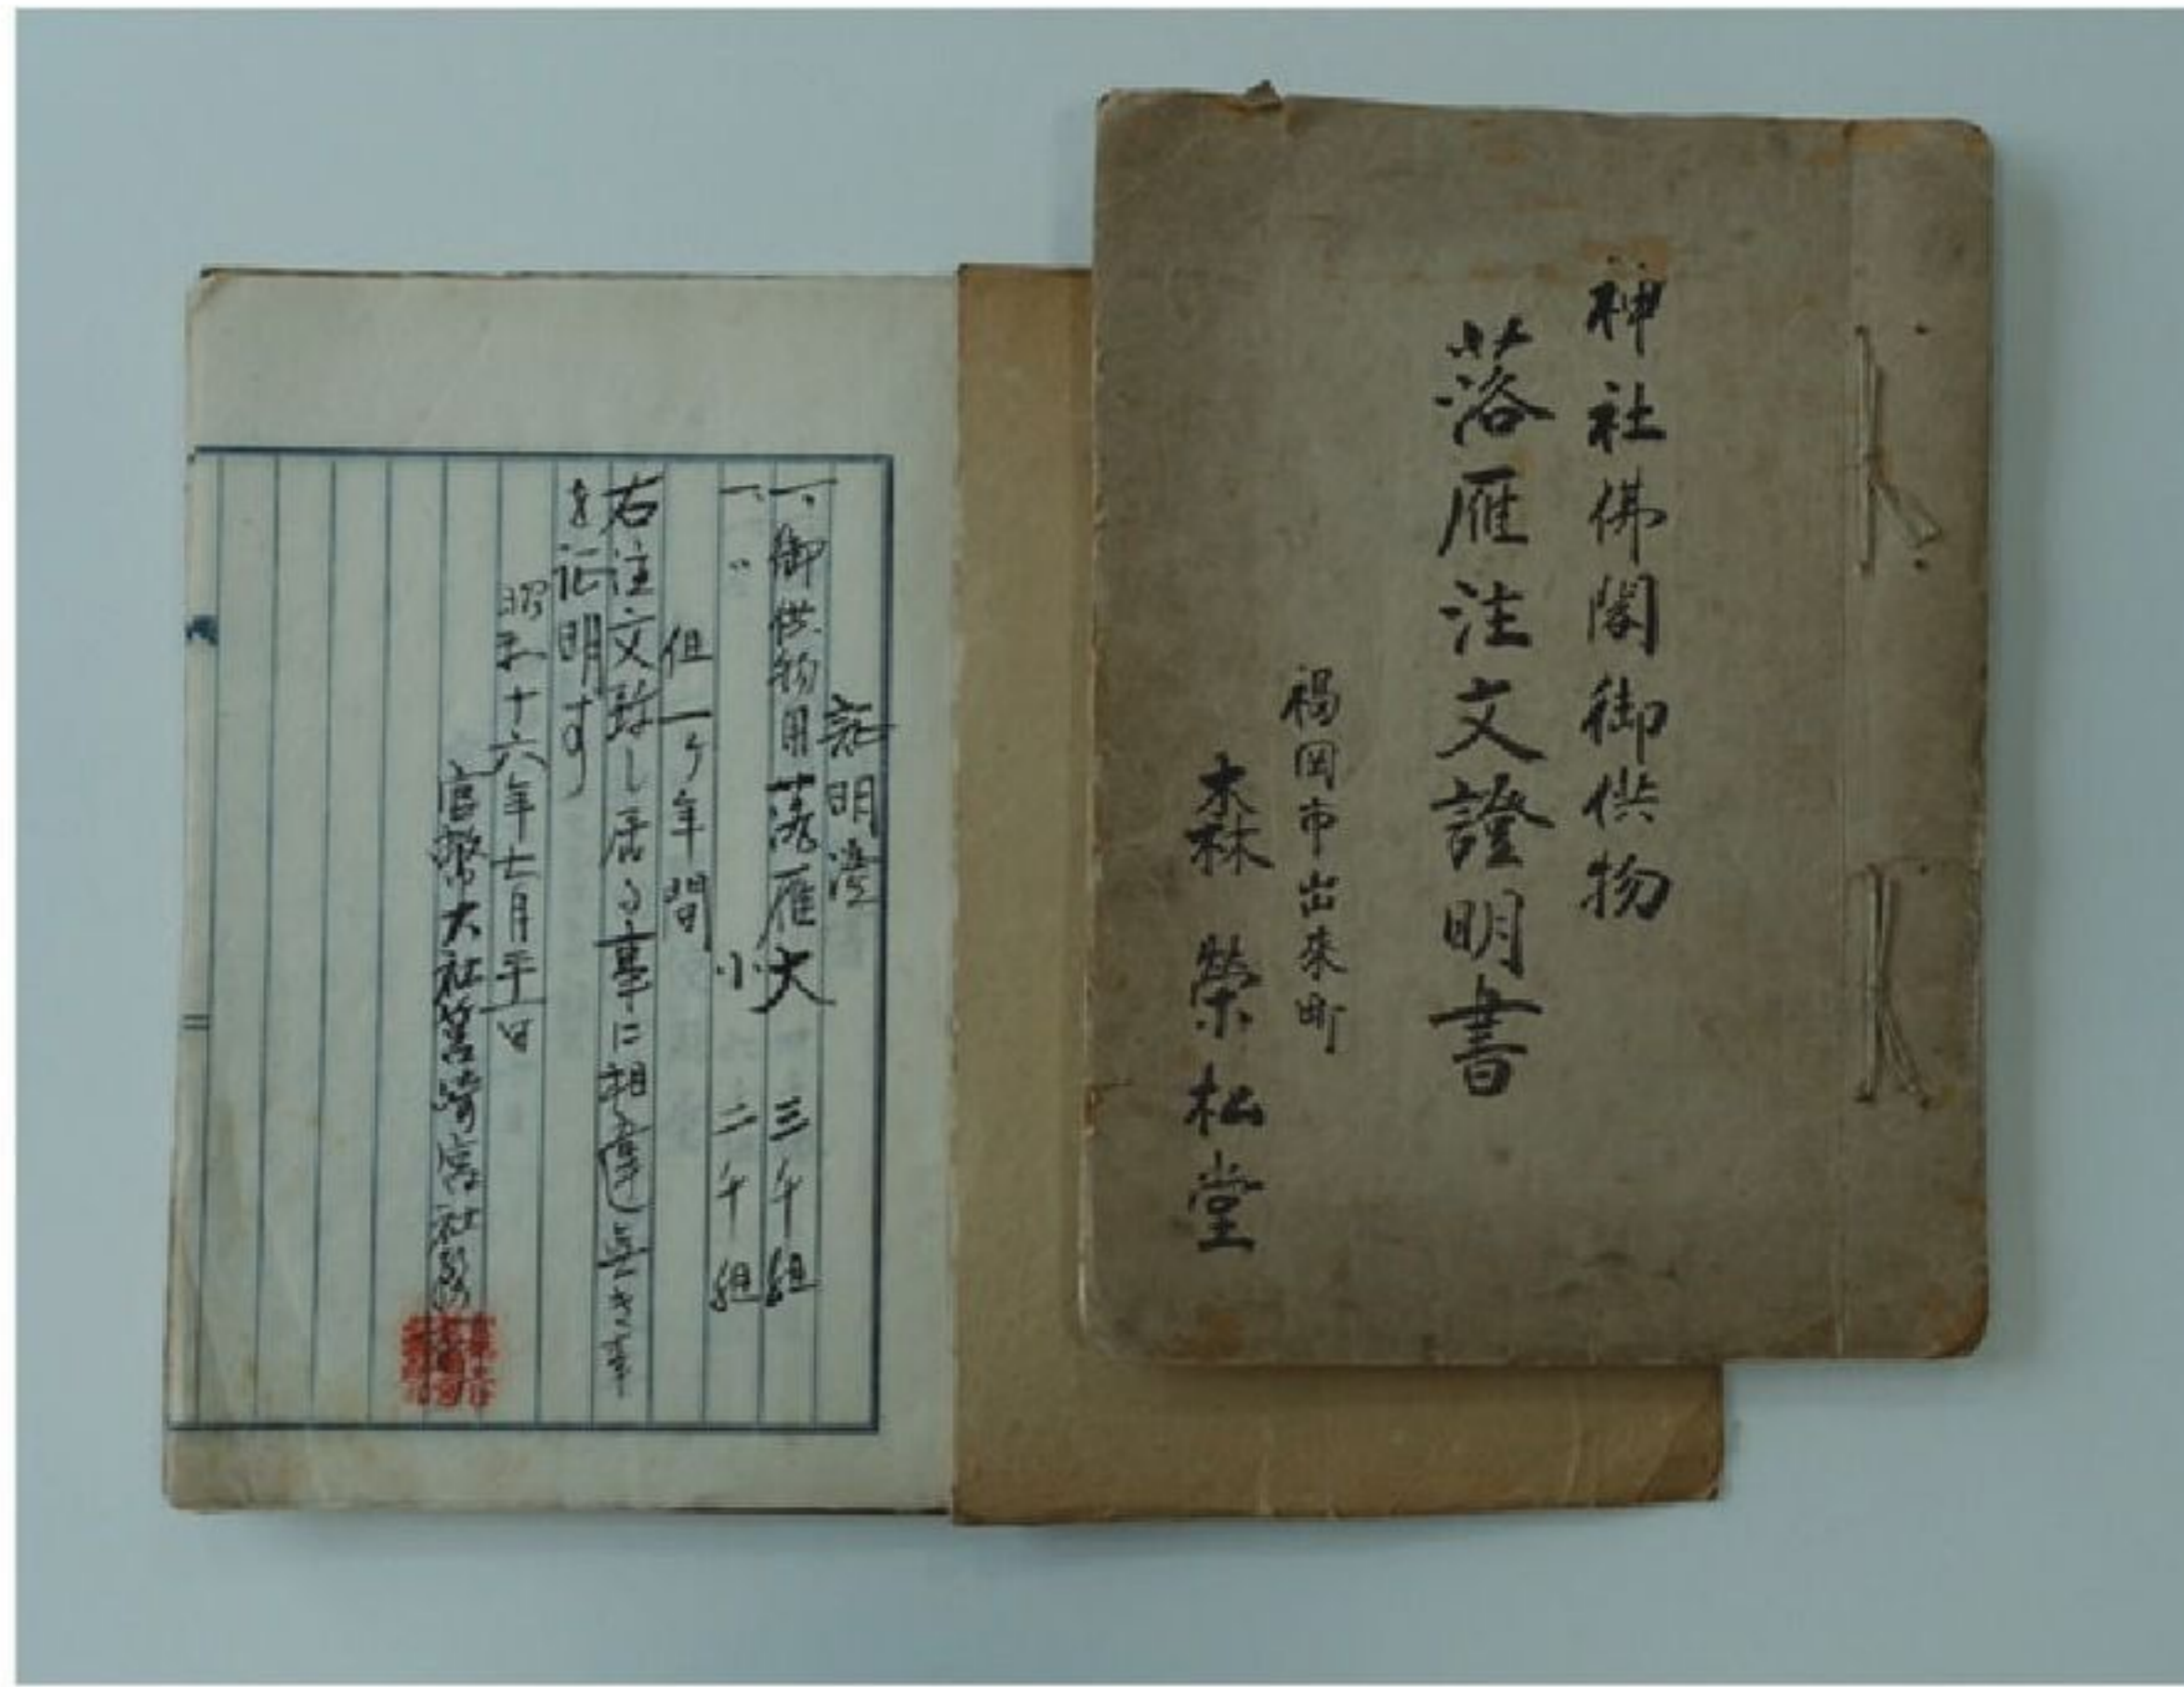 神社佛閣御供物
落雁注文證明書
福岡市出来町
森榮松堂
証明憑
一、御供物用落雁大 三千組
一、〃 小 二千組
但一ヶ年間
右注文致し居る事に相違無き事
を証明す
昭和十六年七月
官幣大社筥崎宮社務所